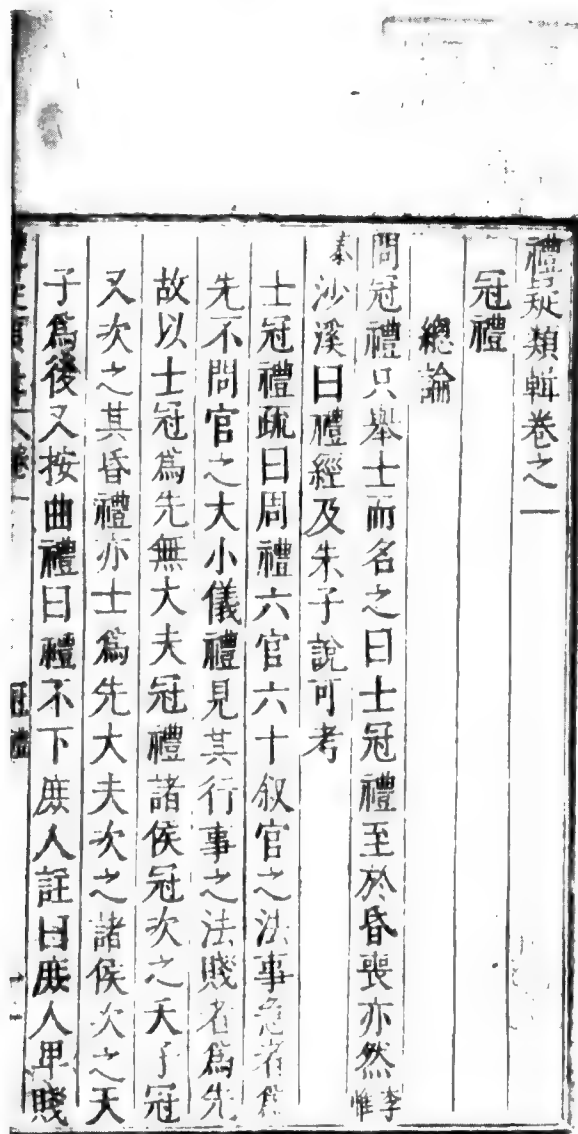 禮疑類輯卷之一
冠禮
總論
問冠禮只舉士而名之曰士冠禮至於昏喪亦然李惟
泰沙溪曰禮經及朱子說可考
士冠禮疏曰周禮六官六十叙官之法事急者爲
先不問官之大小儀禮見其行事之法賤者爲先
故以士冠爲先無大夫冠禮諸侯冠次之天子冠
又次之其昏禮亦士爲先大夫次之諸侯次之天
子爲後又按曲禮曰禮不下庶人註曰庶人卑賤
冠禮